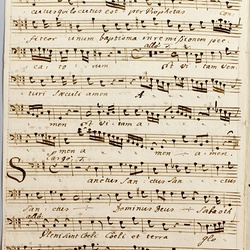 cutus qui locutus est per Prophetas con
fiteor unum baptisma in remissionem pec
ca to rum et vi tam ven
turi sæculi amen A
men et vi tam a
men a men a men.
Largo
Sanctus Sanctus Sanc
tus Dominus Deus Sabaoth
Pleni sunt Coeli Coeli et terra glo